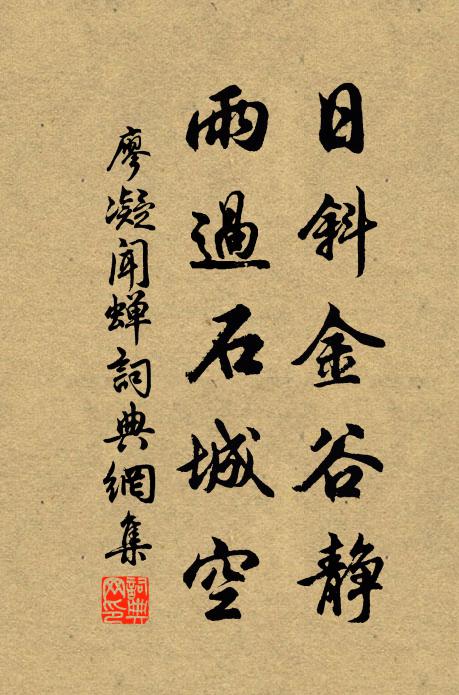 日斜金谷静
雨過石城空
廖凝闻蝉詞典網集
詞典网印